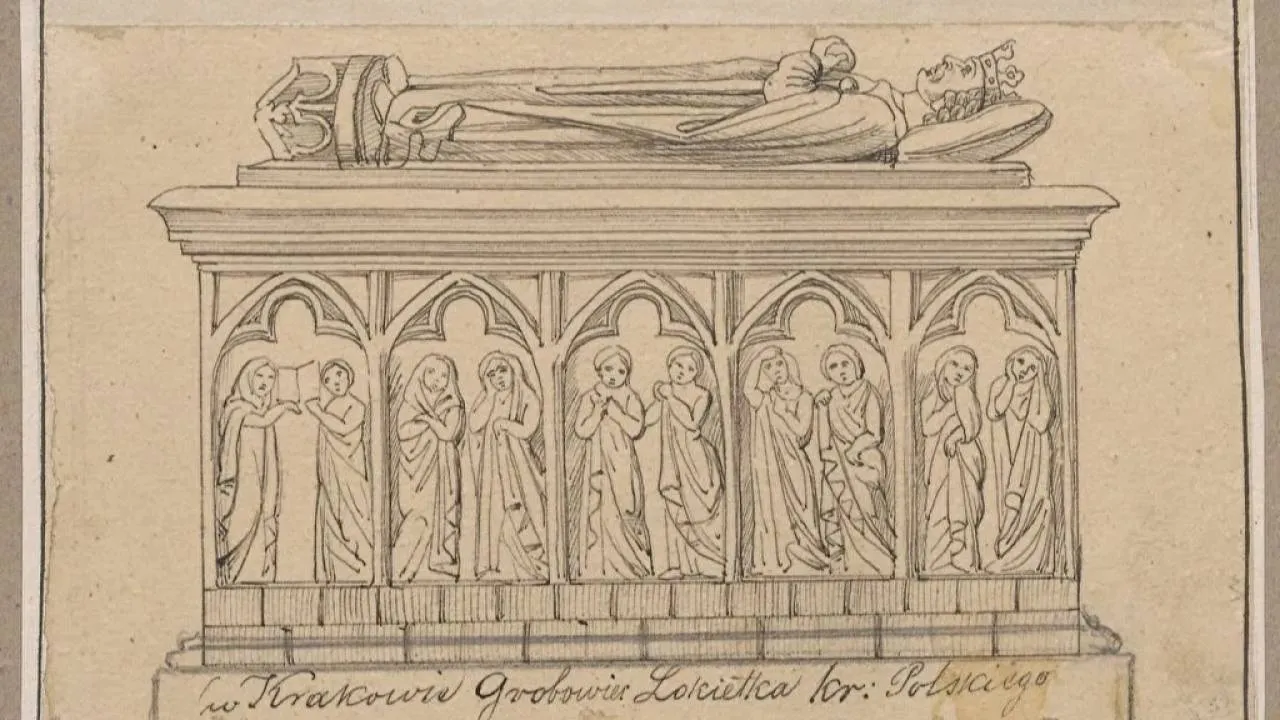 w Krakowie Grobowiec Łokietka kr: Polskiego